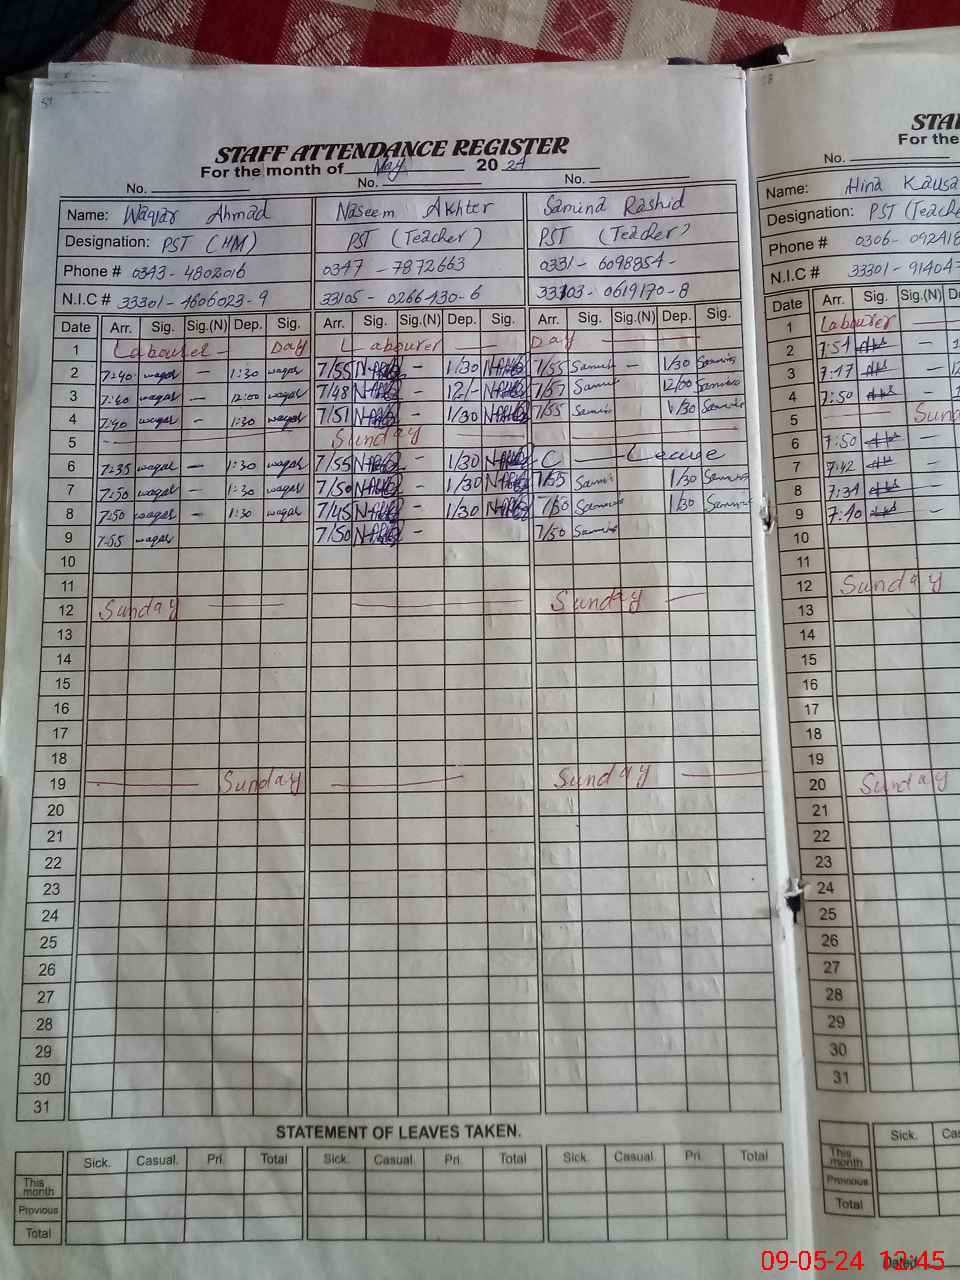 STAFF ATTENDANCE REGISTER
For the month of May 2024
No. No. No.
Name: Waqar Ahmad Naseem Akhter Samina Rashid
Designation: PST (HM) PST (Teacher) PST (Teacher)
Phone # 0343-4802016 0347-7872663 0331-6098854-
N.I.C # 33301-4606023-9 33105-0266430-6 33103-0619170-8
Date Arr. Sig. Sig.(N) Dep. Sig. Arr. Sig. Sig.(N) Dep. Sig. Arr. Sig. Sig.(N) Dep. Sig.
1 Labourer — Day Labourer — Day —
2 7:40 waqar — 1:30 waqar 7/55 - 1/30 7/55 Samina — 1/30 Samina
3 7:40 waqar — 12:00 waqar 7/48 - 12/- 7/57 Samina 12/00 Samina
4 7:40 waqar 1:30 waqar 7/51 - 1/30 7/55 Samina 1/30 Samina
5 — Sunday —
6 7:35 waqar — 1:30 waqar 7/55 - 1/30 C — Leave
7 7:50 waqar — 1:30 waqar 7/50 - 1/30 7/55 Samina 1/30 Samina
8 7:50 waqar — 1:30 waqar 7/45 - 1/30 7/50 Samina 1/30 Samina
9 7:55 waqar 7/50 7/50 Samina
10
11
12 Sunday — — Sunday —
13
14
15
16
17
18
19 — Sunday — Sunday —
20
21
22
23
24
25
26
27
28
29
30
31
STATEMENT OF LEAVES TAKEN.
Sick. Casual. Pri. Total Sick. Casual. Pri. Total Sick. Casual. Pri. Total
This month
Previous
Total
For the
No.
Name: Hina
Designation: PST
Phone #
N.I.C #
Date Arr. Sig. Sig.(N)
1 Labourer —
2 7:51 —
3 7:47 —
4 7:50 —
5 —
6 7:50 —
7 7:42 —
8 7:31 —
9 7:40 —
10
11
12 Sunday
13
14
15
16
17
18
19
20 Sunday
21
22
23
24
25
26
27
28
29
30
31
Sick.
This month
Previous
Total
Dated
09-05-24 12:45